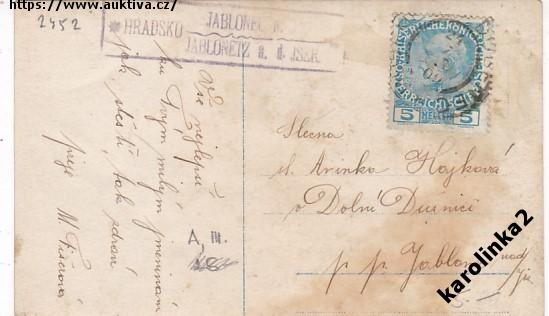 https://www.auktiva.cz/
2452
* HRADSKO
JABLONEC N.
JABLONETZ a. d. ISER.
5 HELLER 5
Vše nejlepší
ku Tvým milým jmeninám
jak štěstí, tak zdraví
přeje M Fišerová
A, III.
Slečna
sl. Arinka Hajková
v Dolní Dušnici
p. p. Jablonec
nad Jiz
karolinka2